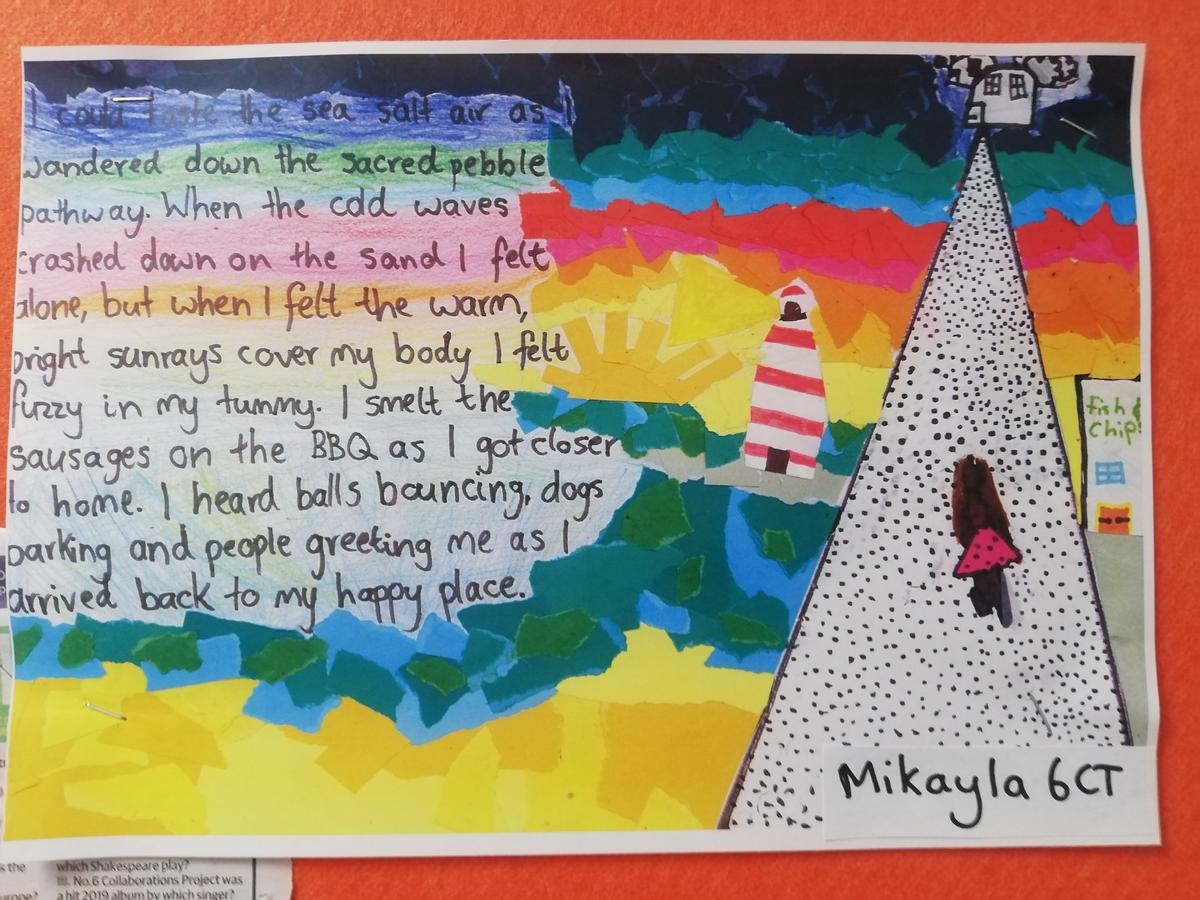 I could taste the sea salt air as I
wandered down the sacred pebble
pathway. When the cold waves
crashed down on the sand I felt
alone, but when I felt the warm,
bright sunrays cover my body I felt
fuzzy in my tummy. I smelt the
sausages on the BBQ as I got closer
to home. I heard balls bouncing, dogs
barking and people greeting me as I
arrived back to my happy place.
Fish &
Chip
Mikayla 6CT
s the
urope?
which Shakespeare play?
No.6 Collaborations Project was
a hit 2019 album by which singer?